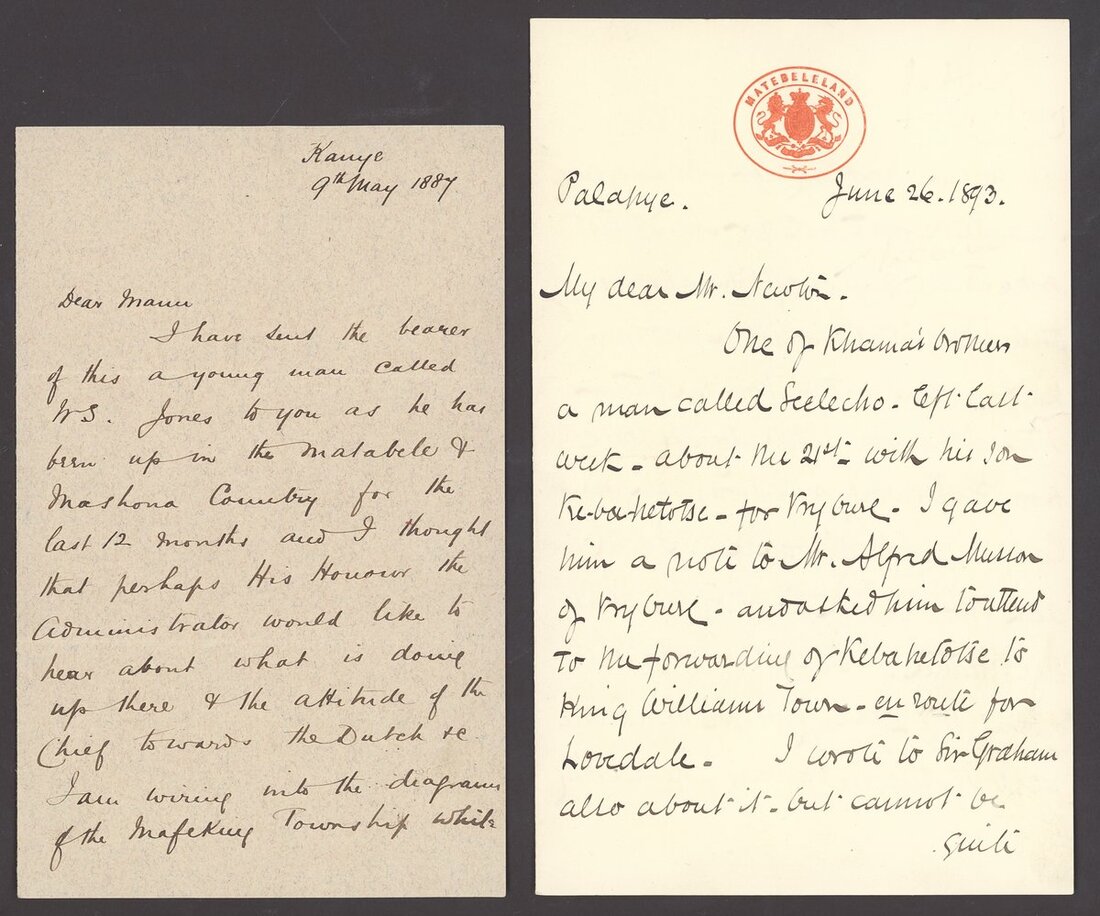 Kanye
9th May 1887
Dear Mann
I have sent the bearer
of this a young man called
W.S. Jones to you as he has
been up in the Matabele &
Mashona Country for the
last 12 months and I thought
that perhaps His Honour the
Administrator would like to
hear about what is doing
up there & the attitude of the
Chief towards the Dutch &c
I am wiring into the diagrams
of the Mafeking Township while
MATEBELELAND
Palapye. June 26. 1893.
My dear Mr. Newton.
One of Khama's brothers
a man called Seelecho. left last
week - about the 21st - with his son
Ke-ba-hetotse - for Vryburg - I gave
him a note to Mr. Alfred Musson
of Vryburg - and asked him to attend
to the forwarding of Kebahetotse to
King Williams Town - en route for
Lovedale - I wrote to Sir Graham
also about it - but cannot be
quite